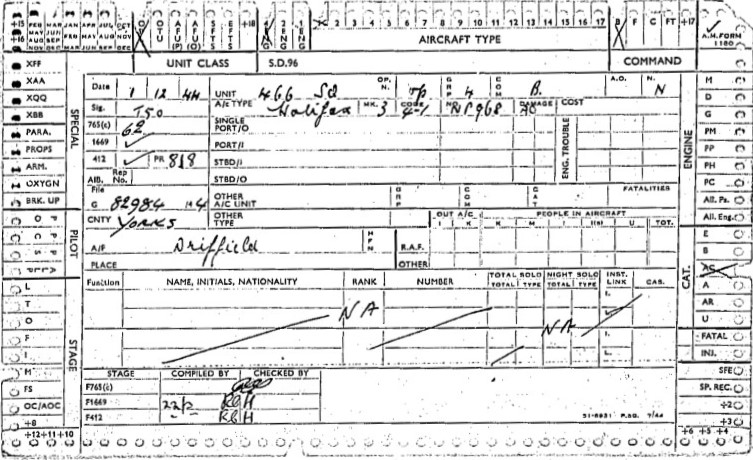 +15 FEB MAR APR MAY JUN JUL OCT
+16 MAY JUN JAN FEB MAR APR NOV
AUG SEP JUL AUG SEP DEC
NOV DEC OCT NOV DEC
OTU AFU (P) AFU (O) SFTS EFTS +18 2 ENG 1 ENG
2 3 4 5 6 7 8 9 10 11 12 13 14 15 16 17 B F C FT +17
A.M. FORM 1180
AIRCRAFT TYPE
UNIT CLASS S.D.96 COMMAND
XFF
XAA
XQQ
XBB
PARA.
PROPS
ARM.
OXYGEN
BRK. UP
SPECIAL
PILOT
STAGE
L
T
O
F
I
M
FS
OC/AOC
+8
+12 +11 +10
Date 1 12 44 UNIT 466 Sd OPN. Tp GRP 4 COM B. A.O. N. N
Sig. T50 A/c TYPE Halifax MK. 3 CODE 4-1 NO NP968 DAMAGE AC COST
765(c) 62 SINGLE PORT/O ENG. TROUBLE
1669 PORT/I
412 PR 818 STBD/I
AIB. Rep No. STBD/O
File G 82984 44 OTHER A/C UNIT GRP COM CAT FATALITIES
CNTY YORKS OTHER TYPE OUT A/C PEOPLE IN AIRCRAFT
I K K M I I(s) U TOT.
A/F Driffield HFN R.A.F.
PLACE OTHER
Function NAME, INITIALS, NATIONALITY RANK NUMBER TOTAL SOLO NIGHT SOLO INST. LINK CAS.
TOTAL TYPE TOTAL TYPE
NA NA
I.
L.
I.
L.
STAGE COMPILED BY CHECKED BY
F765(c)
F1669 RGH
F412 RGH
51-8831 P.&G. 7/44
ENGINE
M
D
G
PM
PP
PH
PC
All. Ps.
All. Eng.
CAT.
E
B
AC
A
AR
U
FATAL
INJ.
SFE
SP. REC.
+2
+3
+6 +5 +4